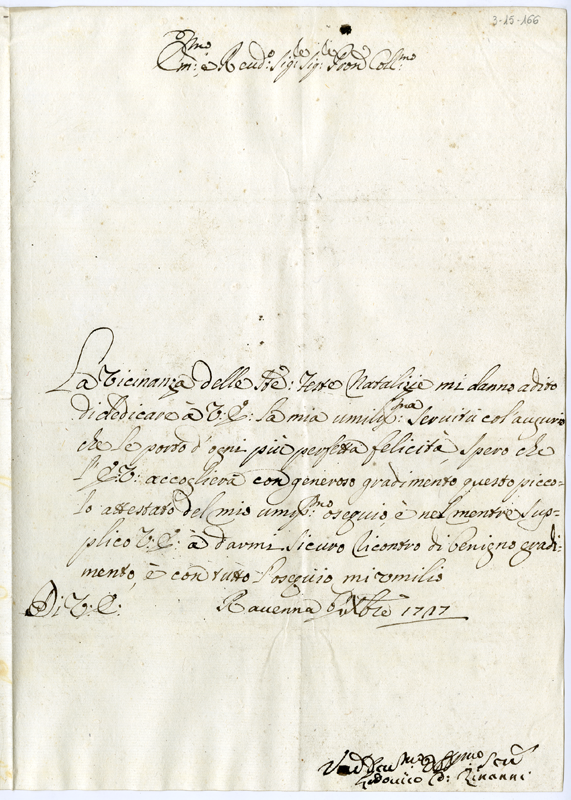 3-15-166
Em:mo e Reud:o Sig:re Sig:re Pron Coll:mo
La Vicinanza delle Ste: Feste Natalizie mi danno adito
di dedicare à V:E: la mia umiliss:ma Servitù col augurio
che le porto d'ogni più perfetta felicità, Spero che
l'E:V: accoglierà con generoso gradimento questo picco-
lo attestato del mio umiliss:mo oseguio, è nel mentre Sup-
plico V:E: à darmi Sicuro ricontro di benigno gradi-
mento, è con tutto l'oseguio mi umilio
Di V: E:
Ravenna Xbre 1717
Lodovico Co: Zinanni